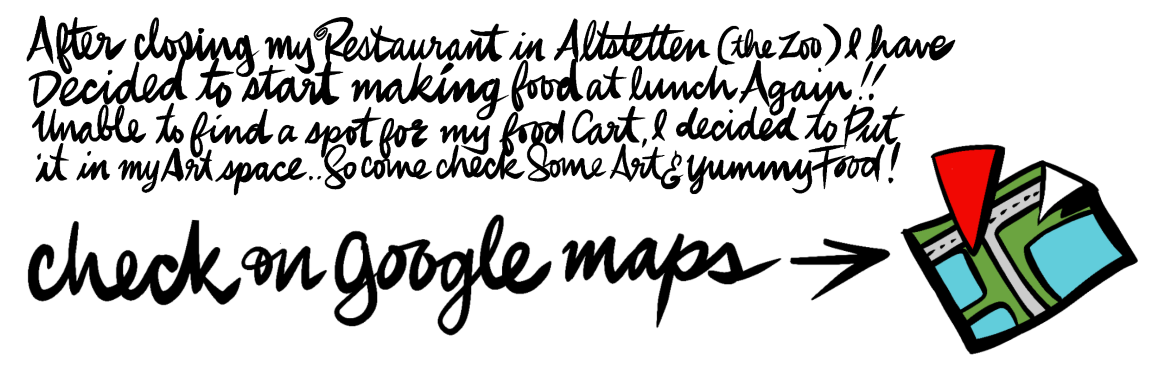 After closing my Restaurant in Altstetten (the Zoo) I have
Decided to start making food at lunch Again!!
Unable to find a spot for my food Cart, I decided to Put
it in my Art space.. So come check Some Art & yummy Food!
check on google maps